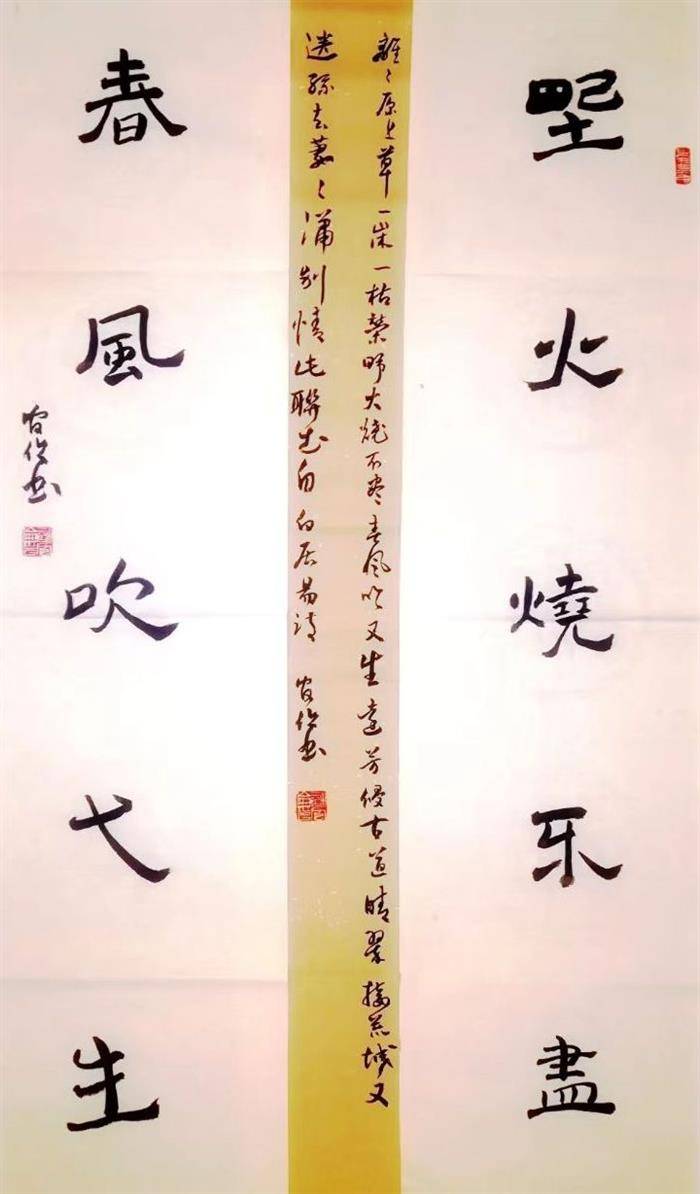 野火燒不盡
離〻原上草一歲一枯榮野火燒不盡春風吹又生遠芳侵古道晴翠接荒城又
送孫去萋〻滿別情此聯出自白居易詩
春風吹又生